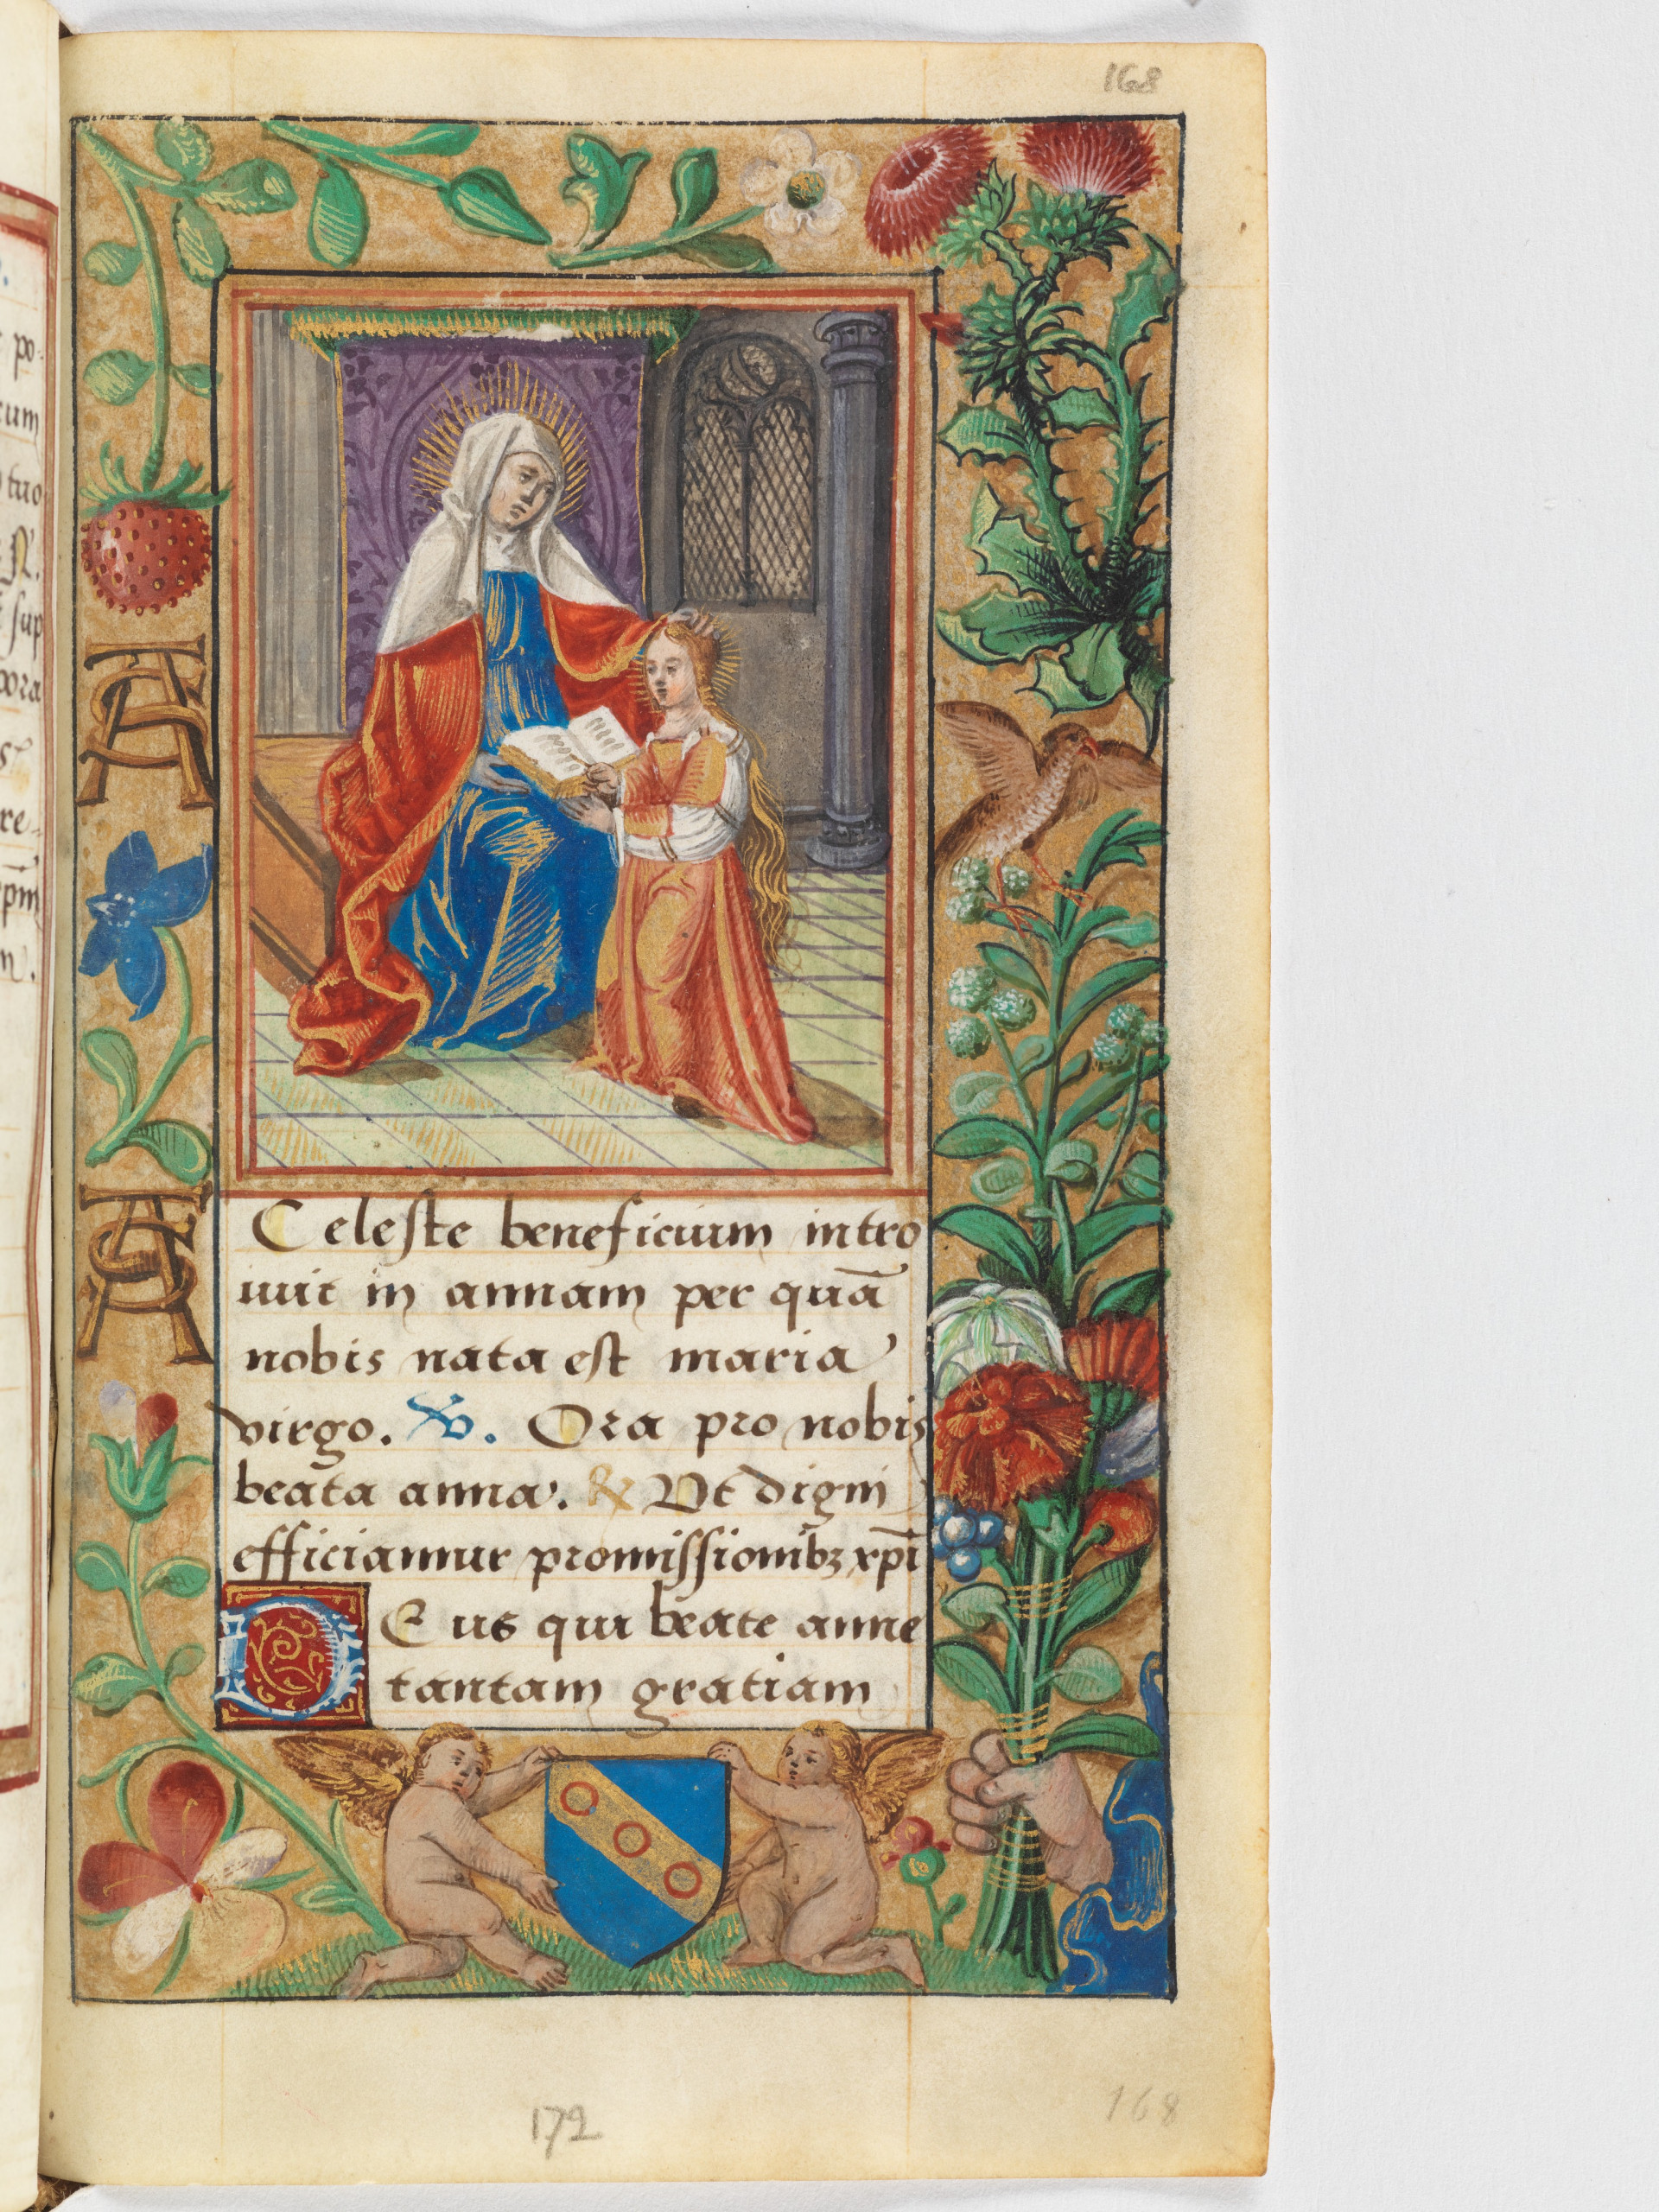 168
po-
cum
tuo
N.
sup
s
re-
n.
AS
AS
Celeste beneficium intro
iuit in annam per quā
nobis nata est maria
virgo. V. Ora pro nobis
beata anna. R Vt digni
efficiamur promissionibꝫ xp̄i
DEus qui beate anne
tantam gratiam
172
168